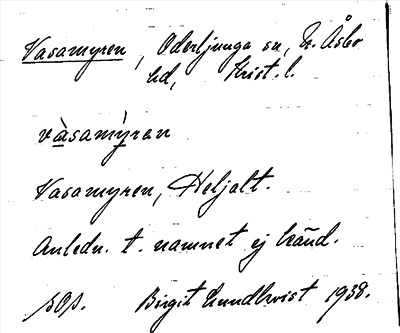 Vasamyren, Oderljunga sn, N. Åsbo
hd, Krist. l.
vàsamỳren
Vasamyren, Heljalt.
Anledn. t. namnet ej känd.
Birgit Lundkvist 1938.